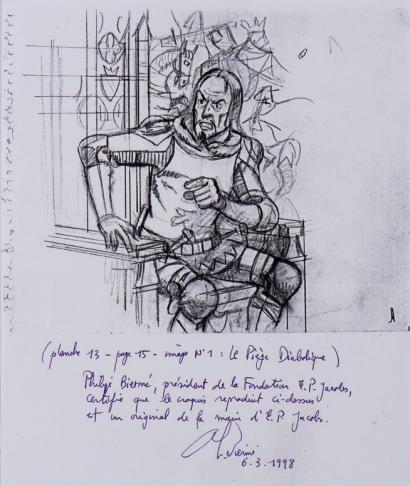 (planche 13 - page 15 - image N°1 : Le Piège Diabolique)
Philippe Biermé, président de la Fondation E.P. Jacobs,
certifie que le croquis reproduit ci-dessus
est un original de la main d'E.P. Jacobs.
6.3.1998